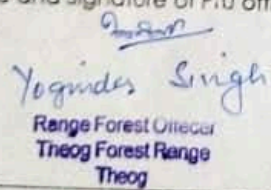 and signature of
Yoginder Singh
Range Forest Officer
Theog Forest Range
Theog